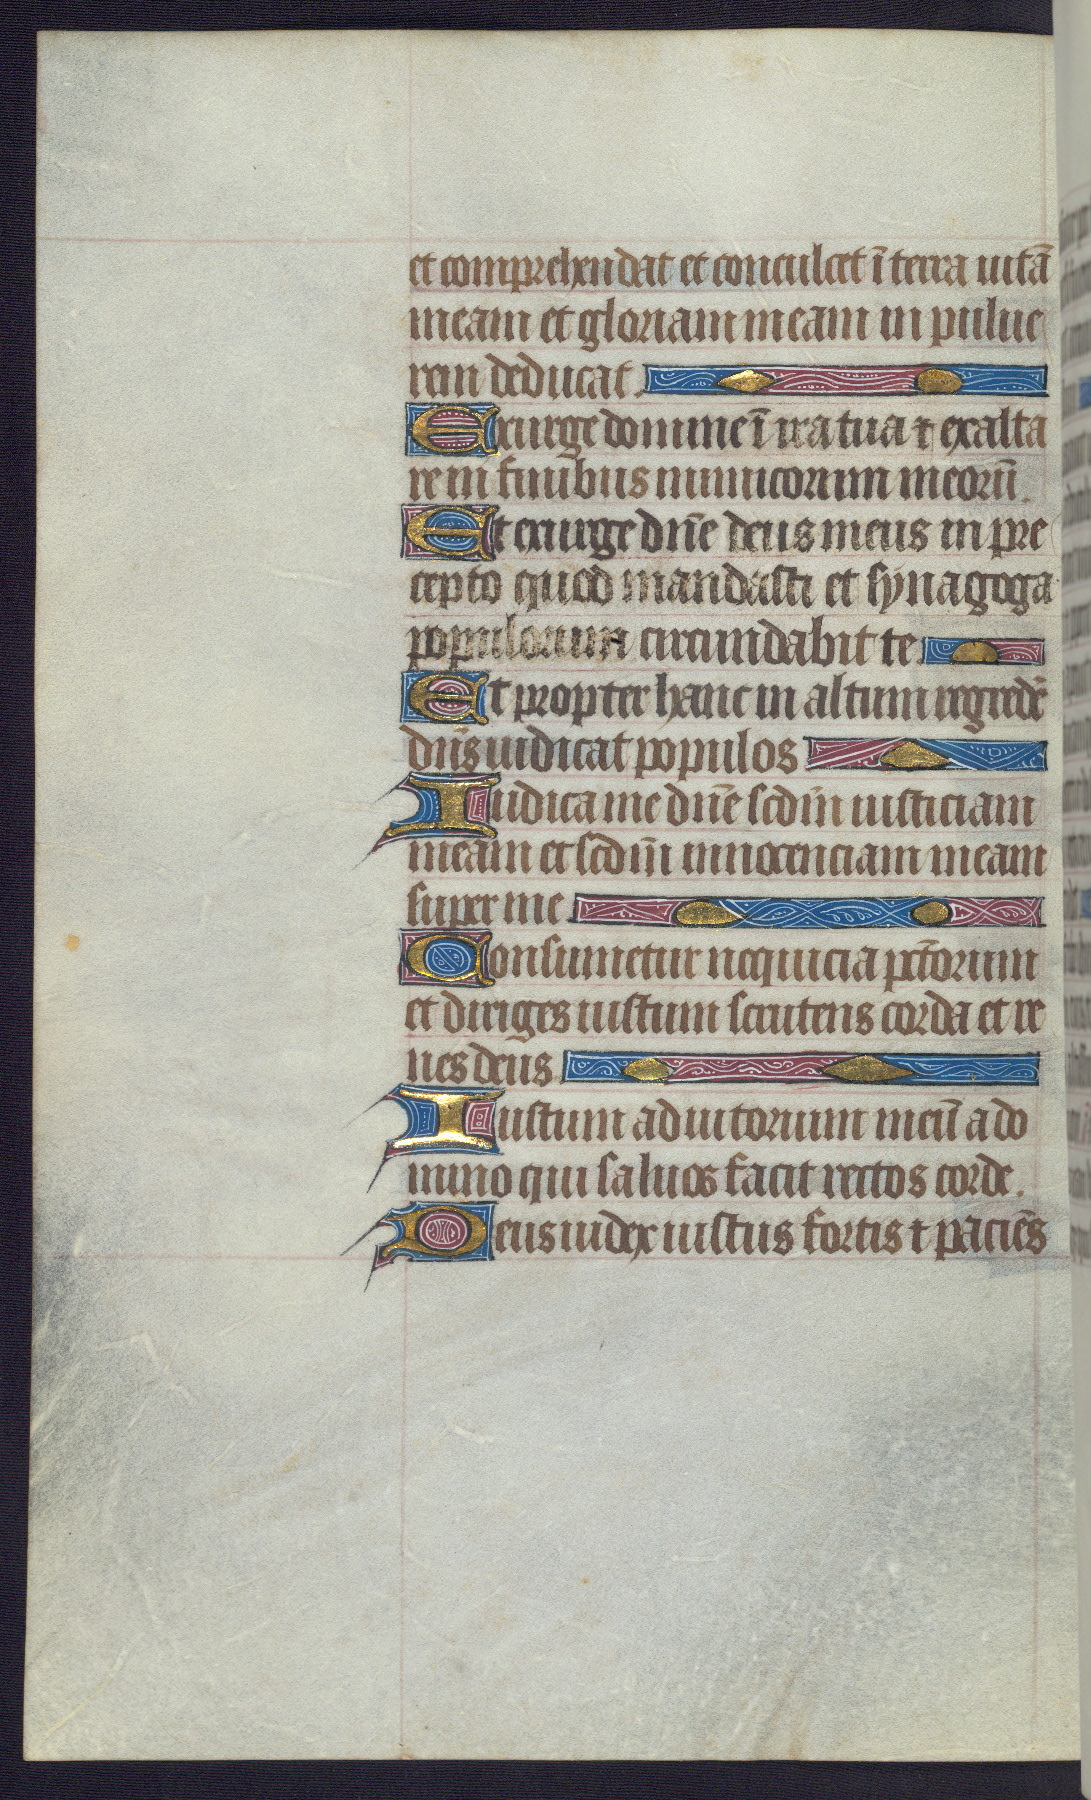 et comprehendat et conculcet ī terra uitā
meam et gloriam meam in pulue
rem deducat.
Exurge domine ī ira tua ⁊ exalta
re in finibus inimicorum meorū.
Et exurge dn̄e deus meus in pre
cepto quod mandasti et synagoga
populorum circumdabit te.
Et propter hanc in altum regredē
dn̄s iudicat populos
Iudica me dn̄e scdm̄ iusticiam
meam et scdm̄ innocenciam meam
super me
Consumetur nequicia pctōrum
et diriges iustum scrutens corda et re
nes deus.
Iustum adiutorium meū a do
mino qui saluos facit rectos corde.
Deus iudex iustus fortis ⁊ paciēs